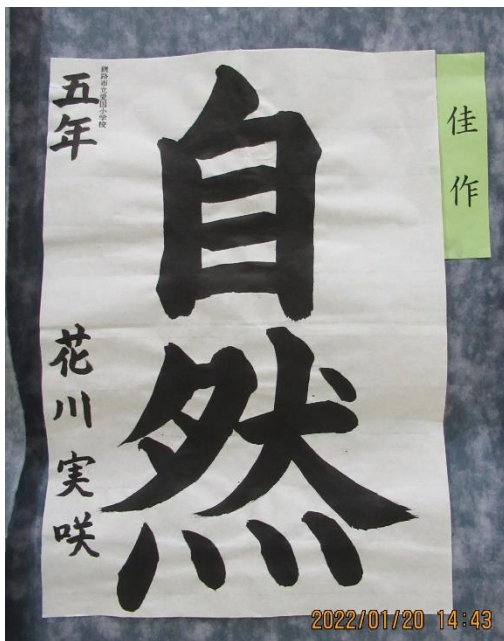 佳作
自然
釧路市立愛国小学校
五年 花川実咲
2022/01/20 14:43